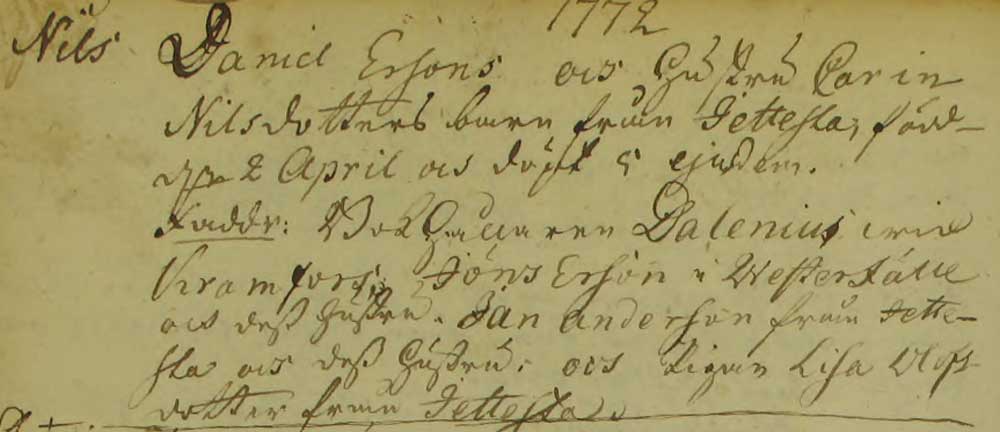 1772
Nils Daniel Ersons och hustru Carin
Nilsdotters barn från Jättesta, född
den 2 April och döpt 5 ejusdem.
Faddr: Bokhållaren Dalenius wid
Kramfors; Jöns Erson i Westerfälle
och dess hustru. Jan anderson från Jätte-
sta och dess hustru; och Pigan Lisa Olofs-
dotter från Jättesta.